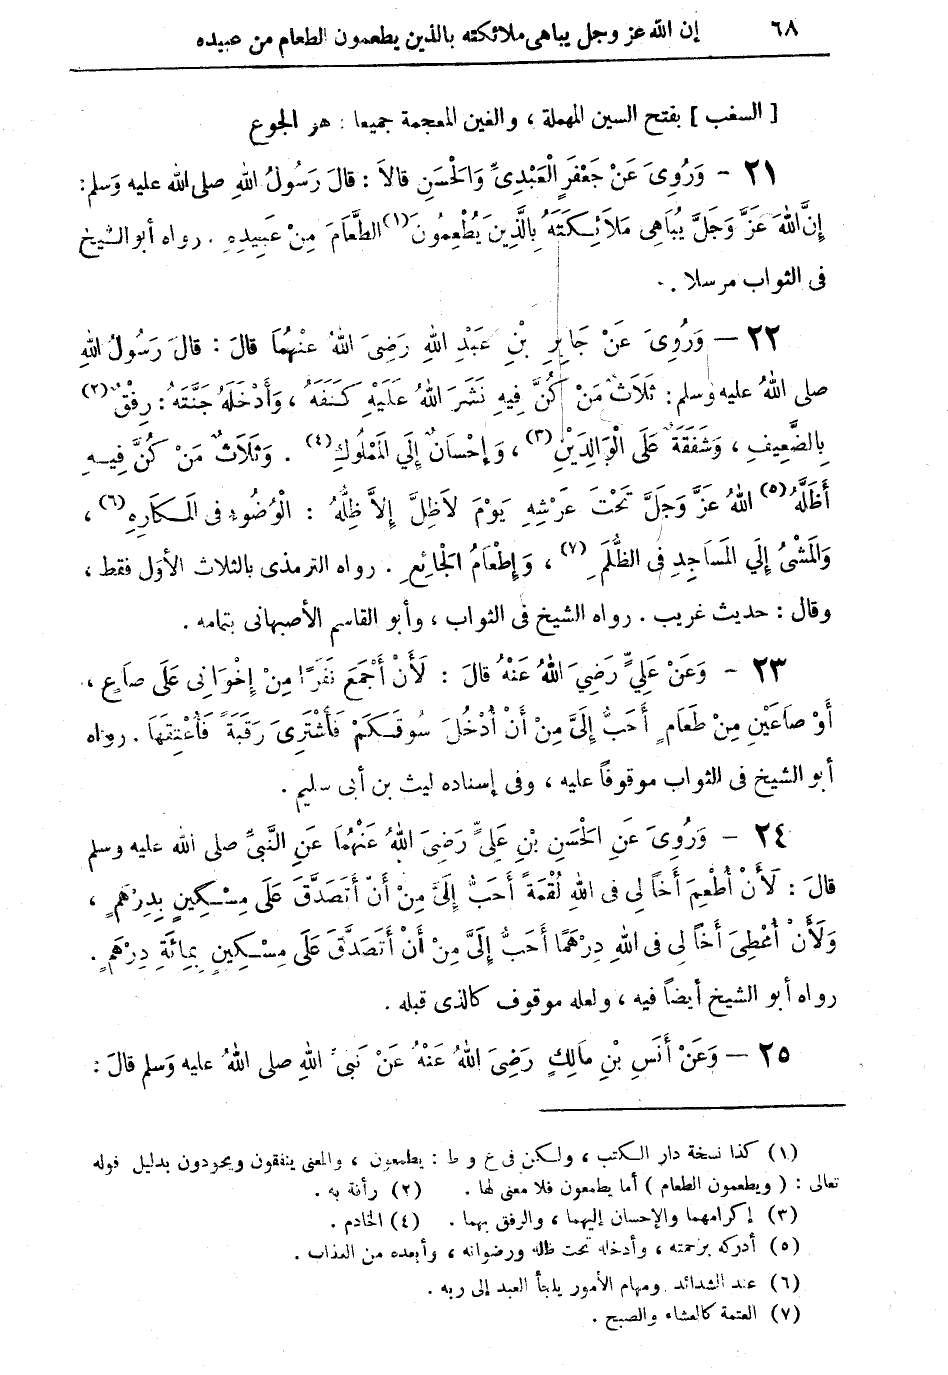 ٦٨ إن الله عز وجل يباهى ملائكته بالذين يطعمون الطعام من عبيده
[ السغب ] بفتح السين المهملة ، والغين المعجمة جميعا : هو الجوع
٢١ - وَرُوِىَ عَنْ جَعْفَرٍ الْعَبْدِىِّ وَالْحَسَنِ قَالاَ : قالَ رَسُولُ اللهِ صلى الله عليه وَسلم :
إِنَّ اللهَ عَزَّ وَجَلَّ يُبَاهِى مَلاَئِكَتَهُ بِالَّذِينَ يُطْعِمُونَ(١) الطَّعَامَ مِنْ عَبِيدِهِ . رواه أبو الشيخ
فى الثواب مرسلا .
٢٢ — وَرُوِىَ عَنْ جَابِرِ بْنِ عَبْدِ اللهِ رَضِىَ اللهُ عَنْهُمَا قالَ : قالَ رَسُولُ اللهِ
صلى اللهُ عليه وسلم : ثَلاَثٌ مَنْ كُنَّ فِيهِ نَشَرَ اللهُ عَلَيْهِ كَنَفَهُ ، وَأَدْخَلَهُ جَنَّتَهُ : رِفْقٌ(٢)
بِالضَّعِيفِ ، وَشَفَقَةٌ عَلَى الْوَالِدَيْنِ(٣) ، وَإِحْسَانٌ إِلَي الْمَمْلُوكِ(٤) . وَثَلاَثٌ مَنْ كُنَّ فِيهِ
أَظَلَّهُ(٥) اللهُ عَزَّ وَجَلَّ تَحْتَ عَرْشِهِ يَوْمَ لاَظِلَّ إِلاَّ ظِلُّهُ : الْوُضُوءُ فى الْمَكَارِهِ(٦) ،
وَالْمَشْىُ إِلَي الْمَسَاجِدِ فِى الظُّلَمِ(٧) ، وَإِطْعَامُ الْجَائِعِ . رواه الترمذى بالثلاث الأوَل فقط ،
وقال : حديث غريب . رواه الشيخ فى الثواب ، وأبو القاسم الأصبهانى بتمامه .
٢٣ - وَعَنْ عَلِيٍّ رَضِىَ اللهُ عَنْهُ قالَ : لَأَنْ أَجْمَعَ نَفَرًا مِنْ إِخْوَانِى عَلَى صَاعٍ ،
أَوْ صَاعَيْنِ مِنْ طَعَامٍ أَحَبُّ إِلَىَّ مِنْ أَنْ أَدْخُلَ سُوقَكُمْ فَأَشْتَرِىَ رَقَبَةً فَأُعْتِقَهَا . رواه
أبو الشيخ فى الثواب موقوفاً عليه ، وفى إسناده ليث بن أبى سليم .
٢٤ - وَرُوِىَ عَنِ الْحَسَنِ بْنِ عَلِيٍّ رَضِىَ اللهُ عَنْهُمَا عَنِ النَّبِىِّ صلى الله عليه وسلم
قالَ : لَأَنْ أُطْعِمَ أَخاً لِى فى اللهِ لُقْمَةً أَحَبُّ إِلَىَّ مِنْ أَنْ أَتَصَدَّقَ عَلَى مِسْكِينٍ بِدِرْهَمٍ ،
وَلَأَنْ أُعْطِىَ أَخاً لِى فى اللهِ دِرْهَمًا أَحَبُّ إِلَىَّ مِنْ أَنْ أَتَصَدَّقَ عَلَى مِسْكِينٍ بِمِائَةِ دِرْهَمٍ .
رواه أبو الشيخ أيضاً فيه ، ولعله موقوف كالذى قبله .
٢٥ — وَعَنْ أَنَسِ بْنِ مَالِكٍ رَضِىَ اللهُ عَنْهُ عَنْ نَبىِّ اللهِ صلى اللهُ عليه وَسلم قالَ :
(١) كذا نسخة دار الكتب ، ولكن فى ع و ط : يطعمون ، والمعنى ينفقون ويجودون بدليل قوله
تعالى : ( ويطعمون الطعام ) أما يطمعون فلا معنى لها . (٢) رأفة به .
(٣) إكرامهما والإحسان إليهما ، والرفق بهما . (٤) الخادم .
(٥) أدركه برحمته ، وأدخله تحت ظله ورضوانه ، وأبعده من العذاب .
(٦) عند الشدائد ومهام الأمور يلجأ العبد إلى ربه .
(٧) العتمة كالعشاء والصبح .